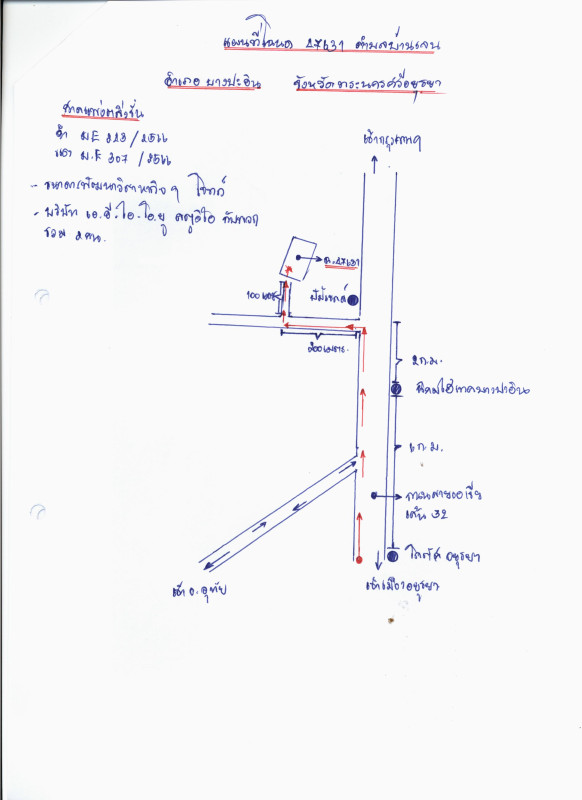 แผนที่โฉนด 27631 ตำบลบ้านเลน
อำเภอ บางปะอิน จังหวัดพระนครศรีอยุธยา
ศาลแพ่งตลิ่งชัน
ดำ ผบ.E 223 / 2566
แดง ผบ.E 307 / 2566
- ธนาคารพัฒนาวิสาหกิจ ฯ โจทก์
- บริษัท เอ.อี.ไอ.โอ.ยู สตูดิโอ กับพวก
รวม 2 คน.
เข้ากรุงเทพฯ
ฉ.27631
100 เมตร
200 เมตร.
2 ก.ม.
นิคมไฮเทคบางปะอิน
6 ก.ม.
ถนนสายเอเชีย
เส้น 32
โลตัส อยุธยา
เข้า อ.อุทัย
เข้าเมืองอยุธยา